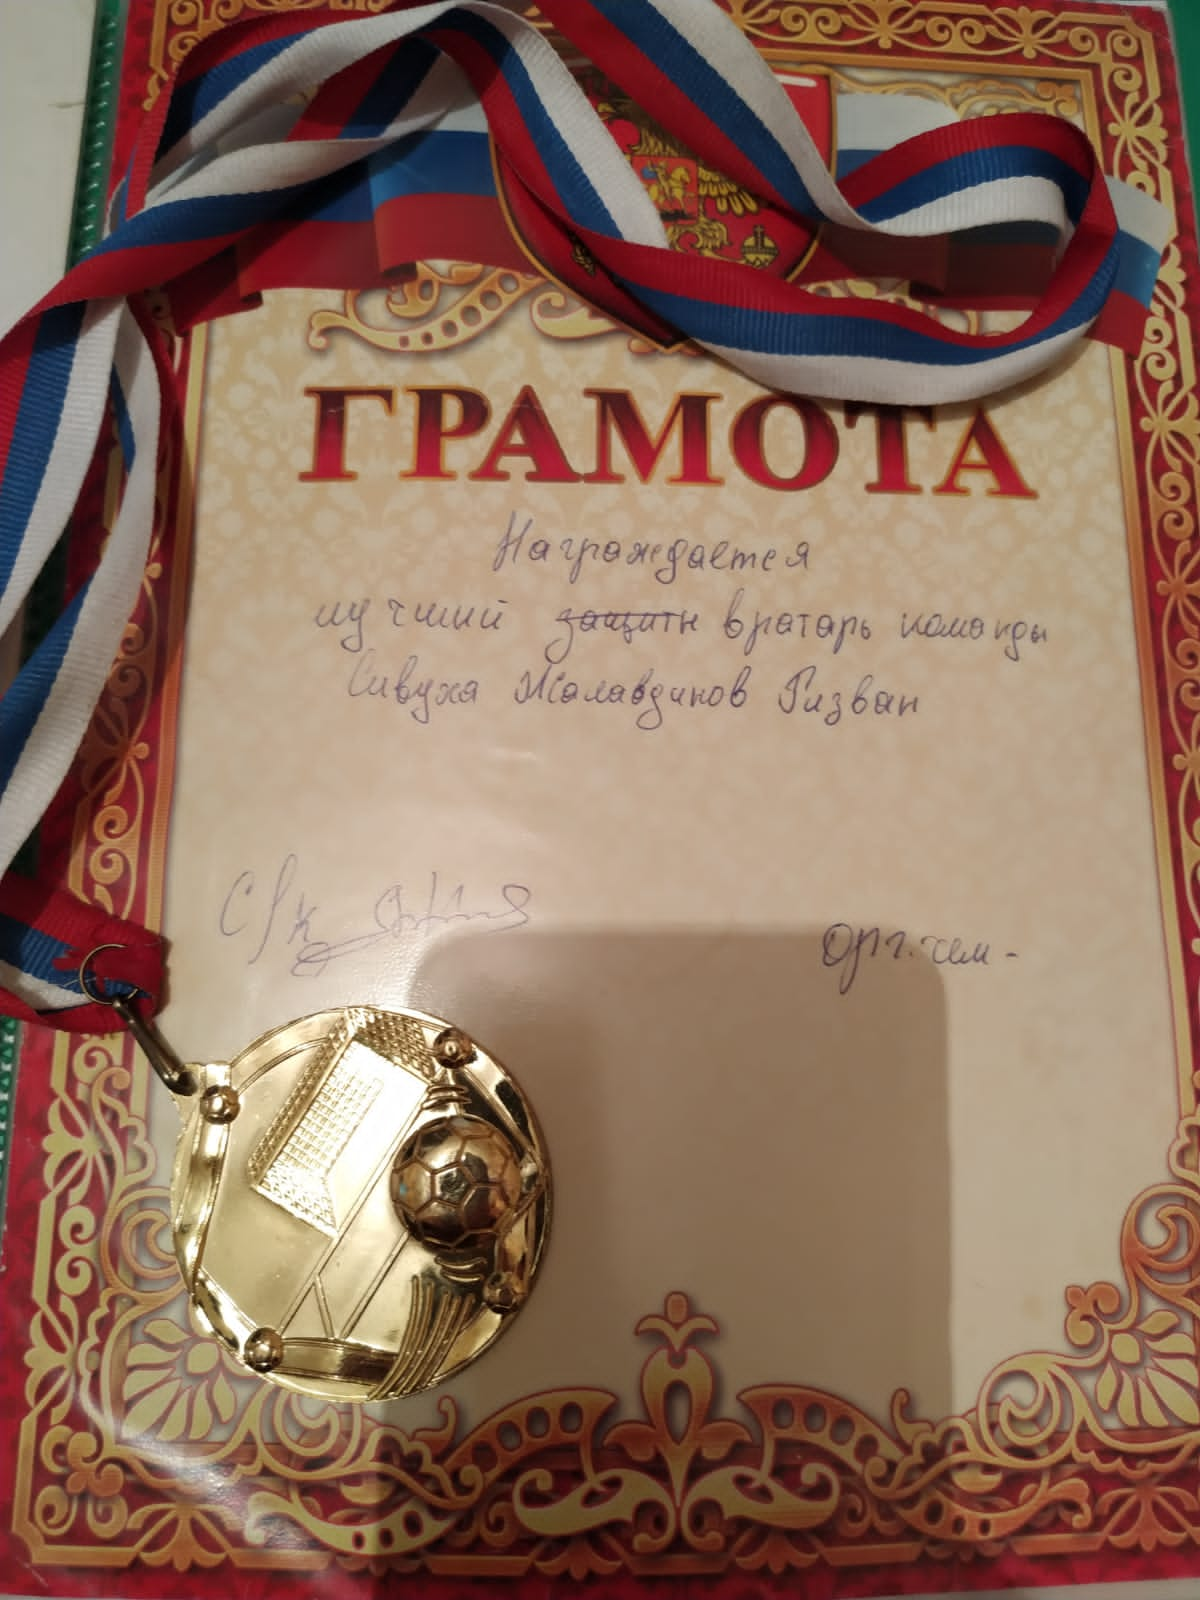 ГРАМОТА
Награждается
лучший защитн вратарь команды
Сивуха Жалавдинов Ризван
С/к
Орг. чем -